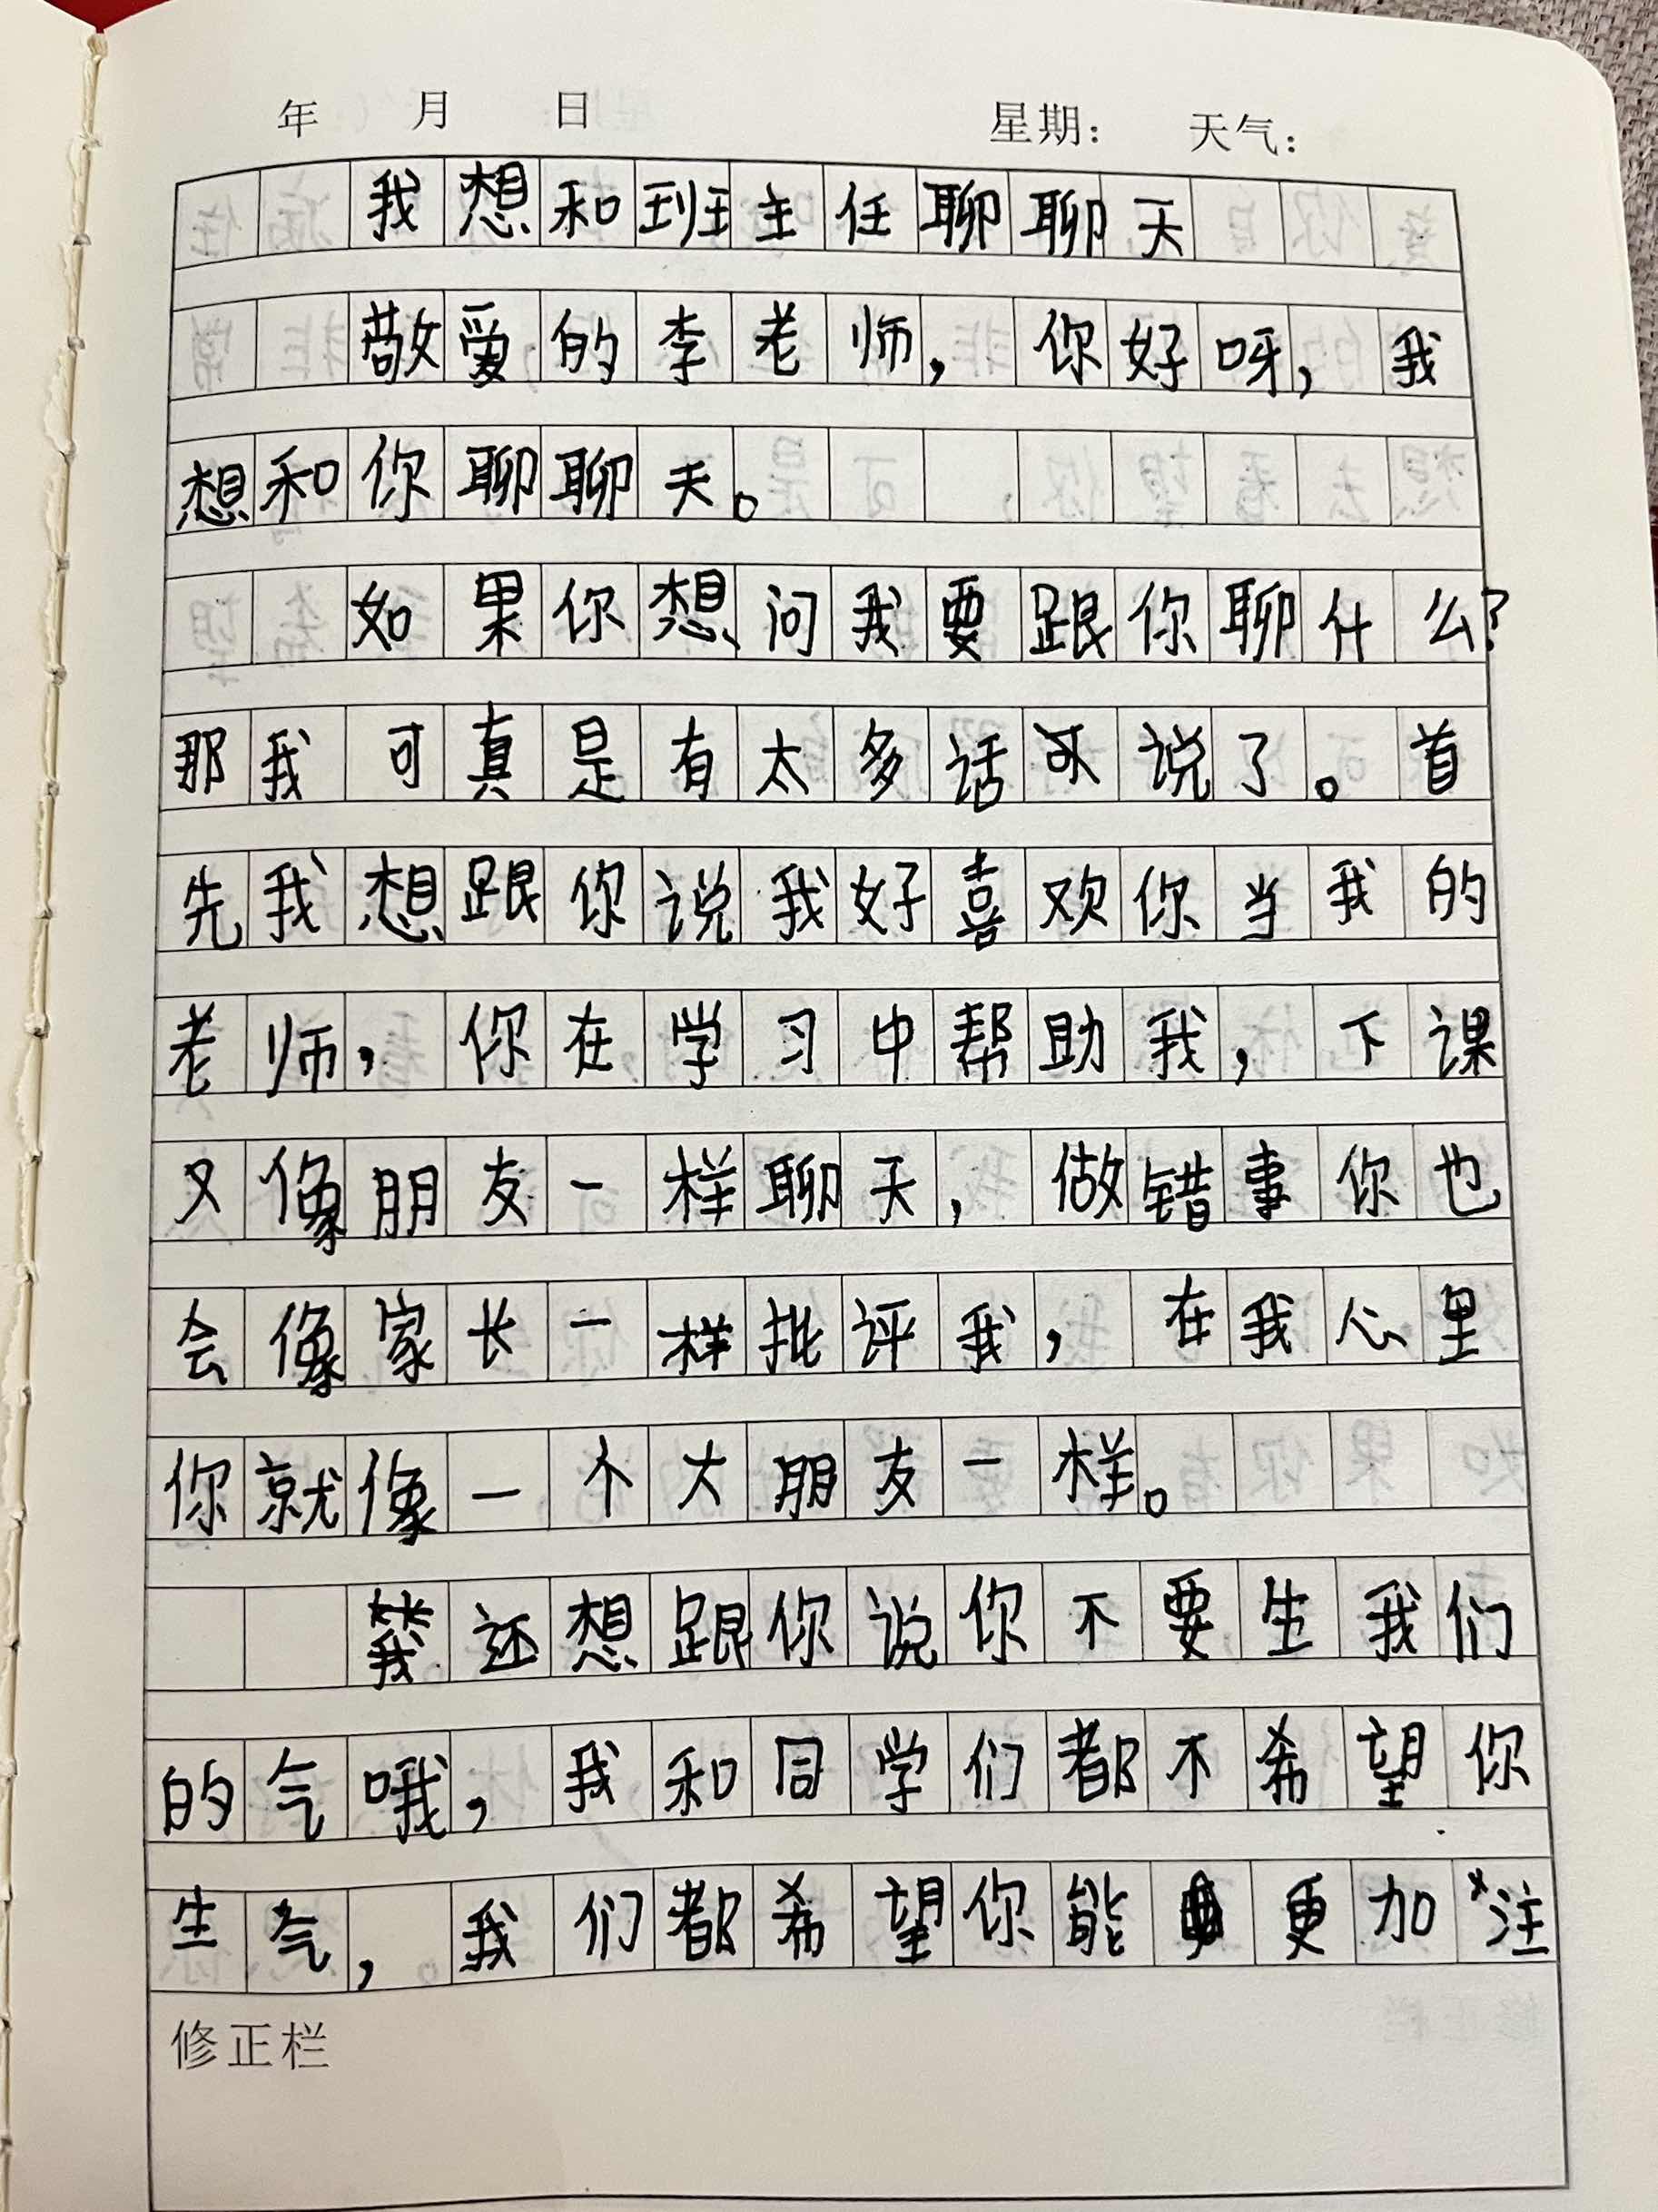 年 月 日 星期： 天气：
我想和班主任聊聊天
敬爱的李老师，你好呀，我
想和你聊聊天。
如果你想问我要跟你聊什么？
那我可真是有太多话可说了。首
先我想跟你说我好喜欢你当我的
老师，你在学习中帮助我，下课
又像朋友一样聊天，做错事你也
会像家长一样批评我，在我心里
你就像一个大朋友一样。
我还想跟你说你不要生我们
的气哦，我和同学们都不希望你
生气，我们都希望你能更加注
修正栏